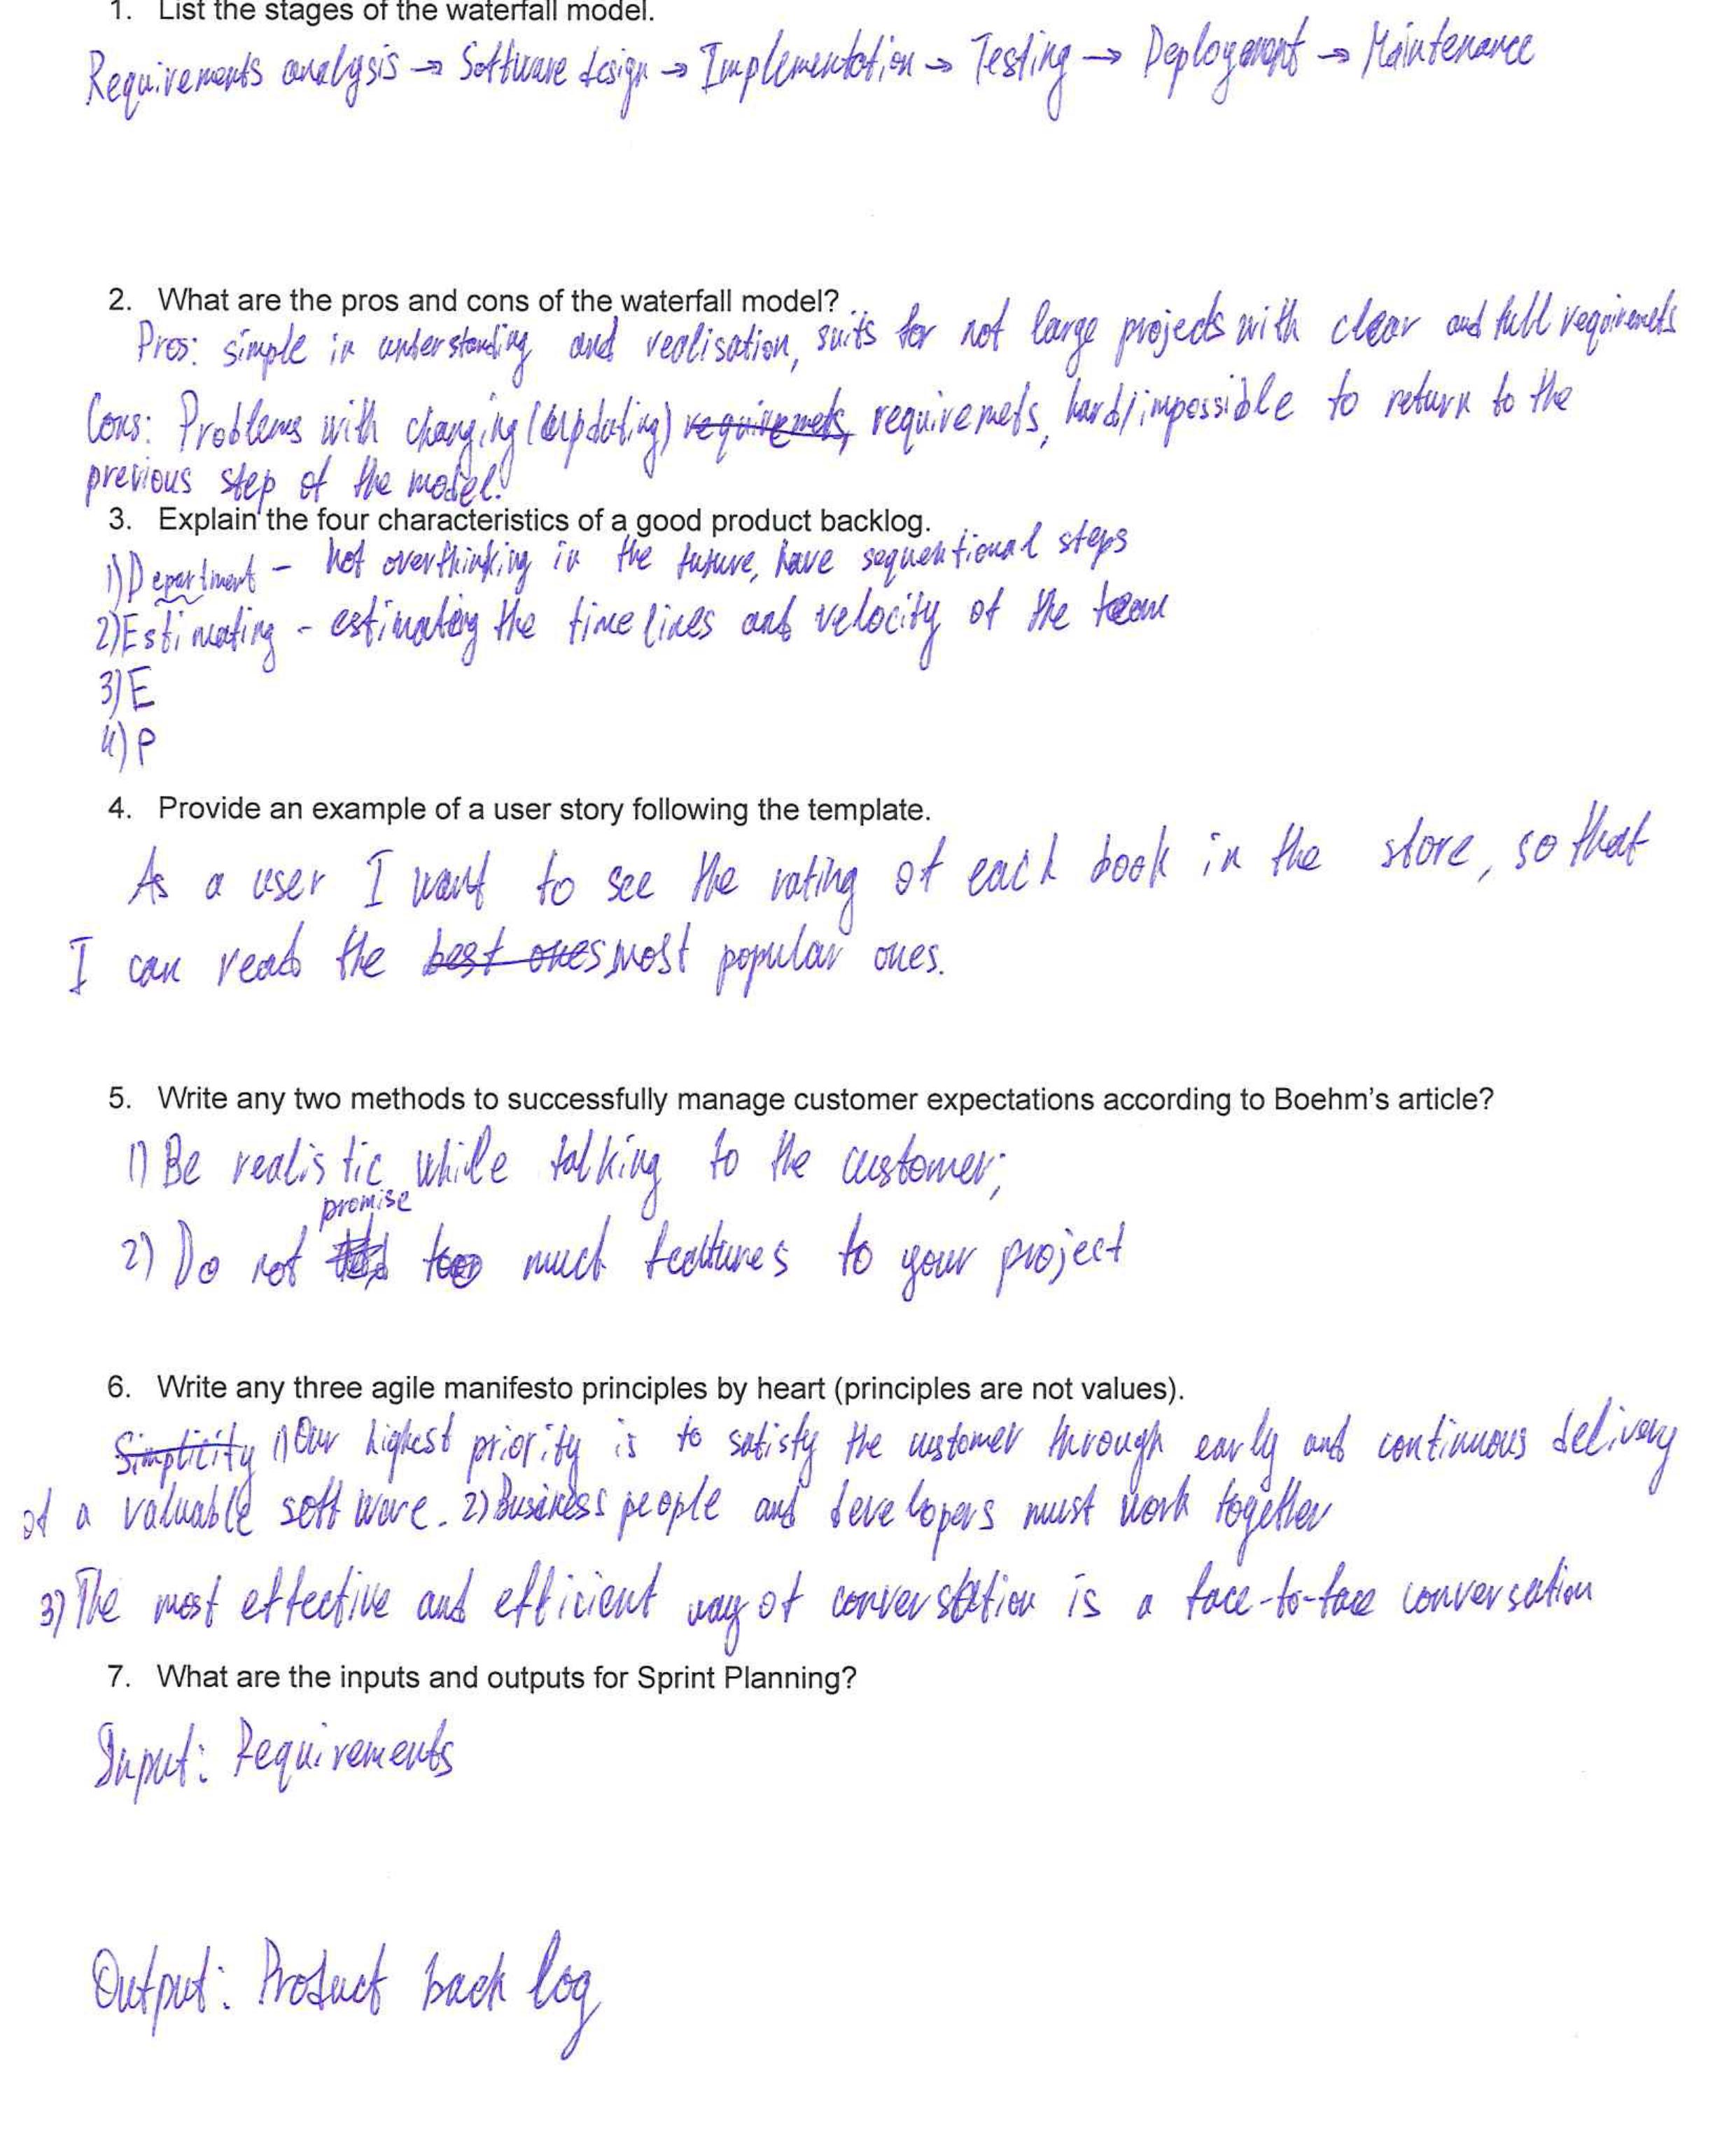 1. List the stages of the waterfall model.
Requirements analysis → Software design → Implementation → Testing → Deployment → Maintenance
2. What are the pros and cons of the waterfall model?
Pros: simple in understanding and realisation, suits for not large projects with clear and full requiremets
Cons: Problems with changing (updating) requiremets, requiremets, hard/impossible to return to the
previous step of the model.
3. Explain the four characteristics of a good product backlog.
1) Department - not overthinking in the future, have sequentional steps
2) Estimating - estimating the timelines and velocity of the team
3) E
4) P
4. Provide an example of a user story following the template.
As a user I want to see the rating of each book in the store, so that
I can read the best ones most popular ones.
5. Write any two methods to successfully manage customer expectations according to Boehm's article?
1) Be realistic while talking to the customer;
promise
2) Do not too much features to your project
6. Write any three agile manifesto principles by heart (principles are not values).
Simplicity 1) Our highest priority is to satisfy the customer through early and continuous delivery
of a valuable software. 2) Business people and developers must work together
3) The most effective and efficient way of converstation is a face-to-face conversation
7. What are the inputs and outputs for Sprint Planning?
Input: Requirements
Output: Product back log